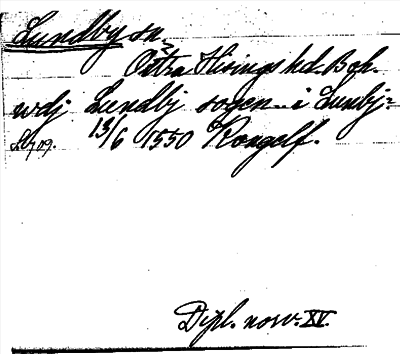 Lundby sn
Östra Hisings hd. Boh.
wdj Lundbj sogen .. i Lunbj=
13/6 1550 Kongelf.
Dipl. norv. XV.